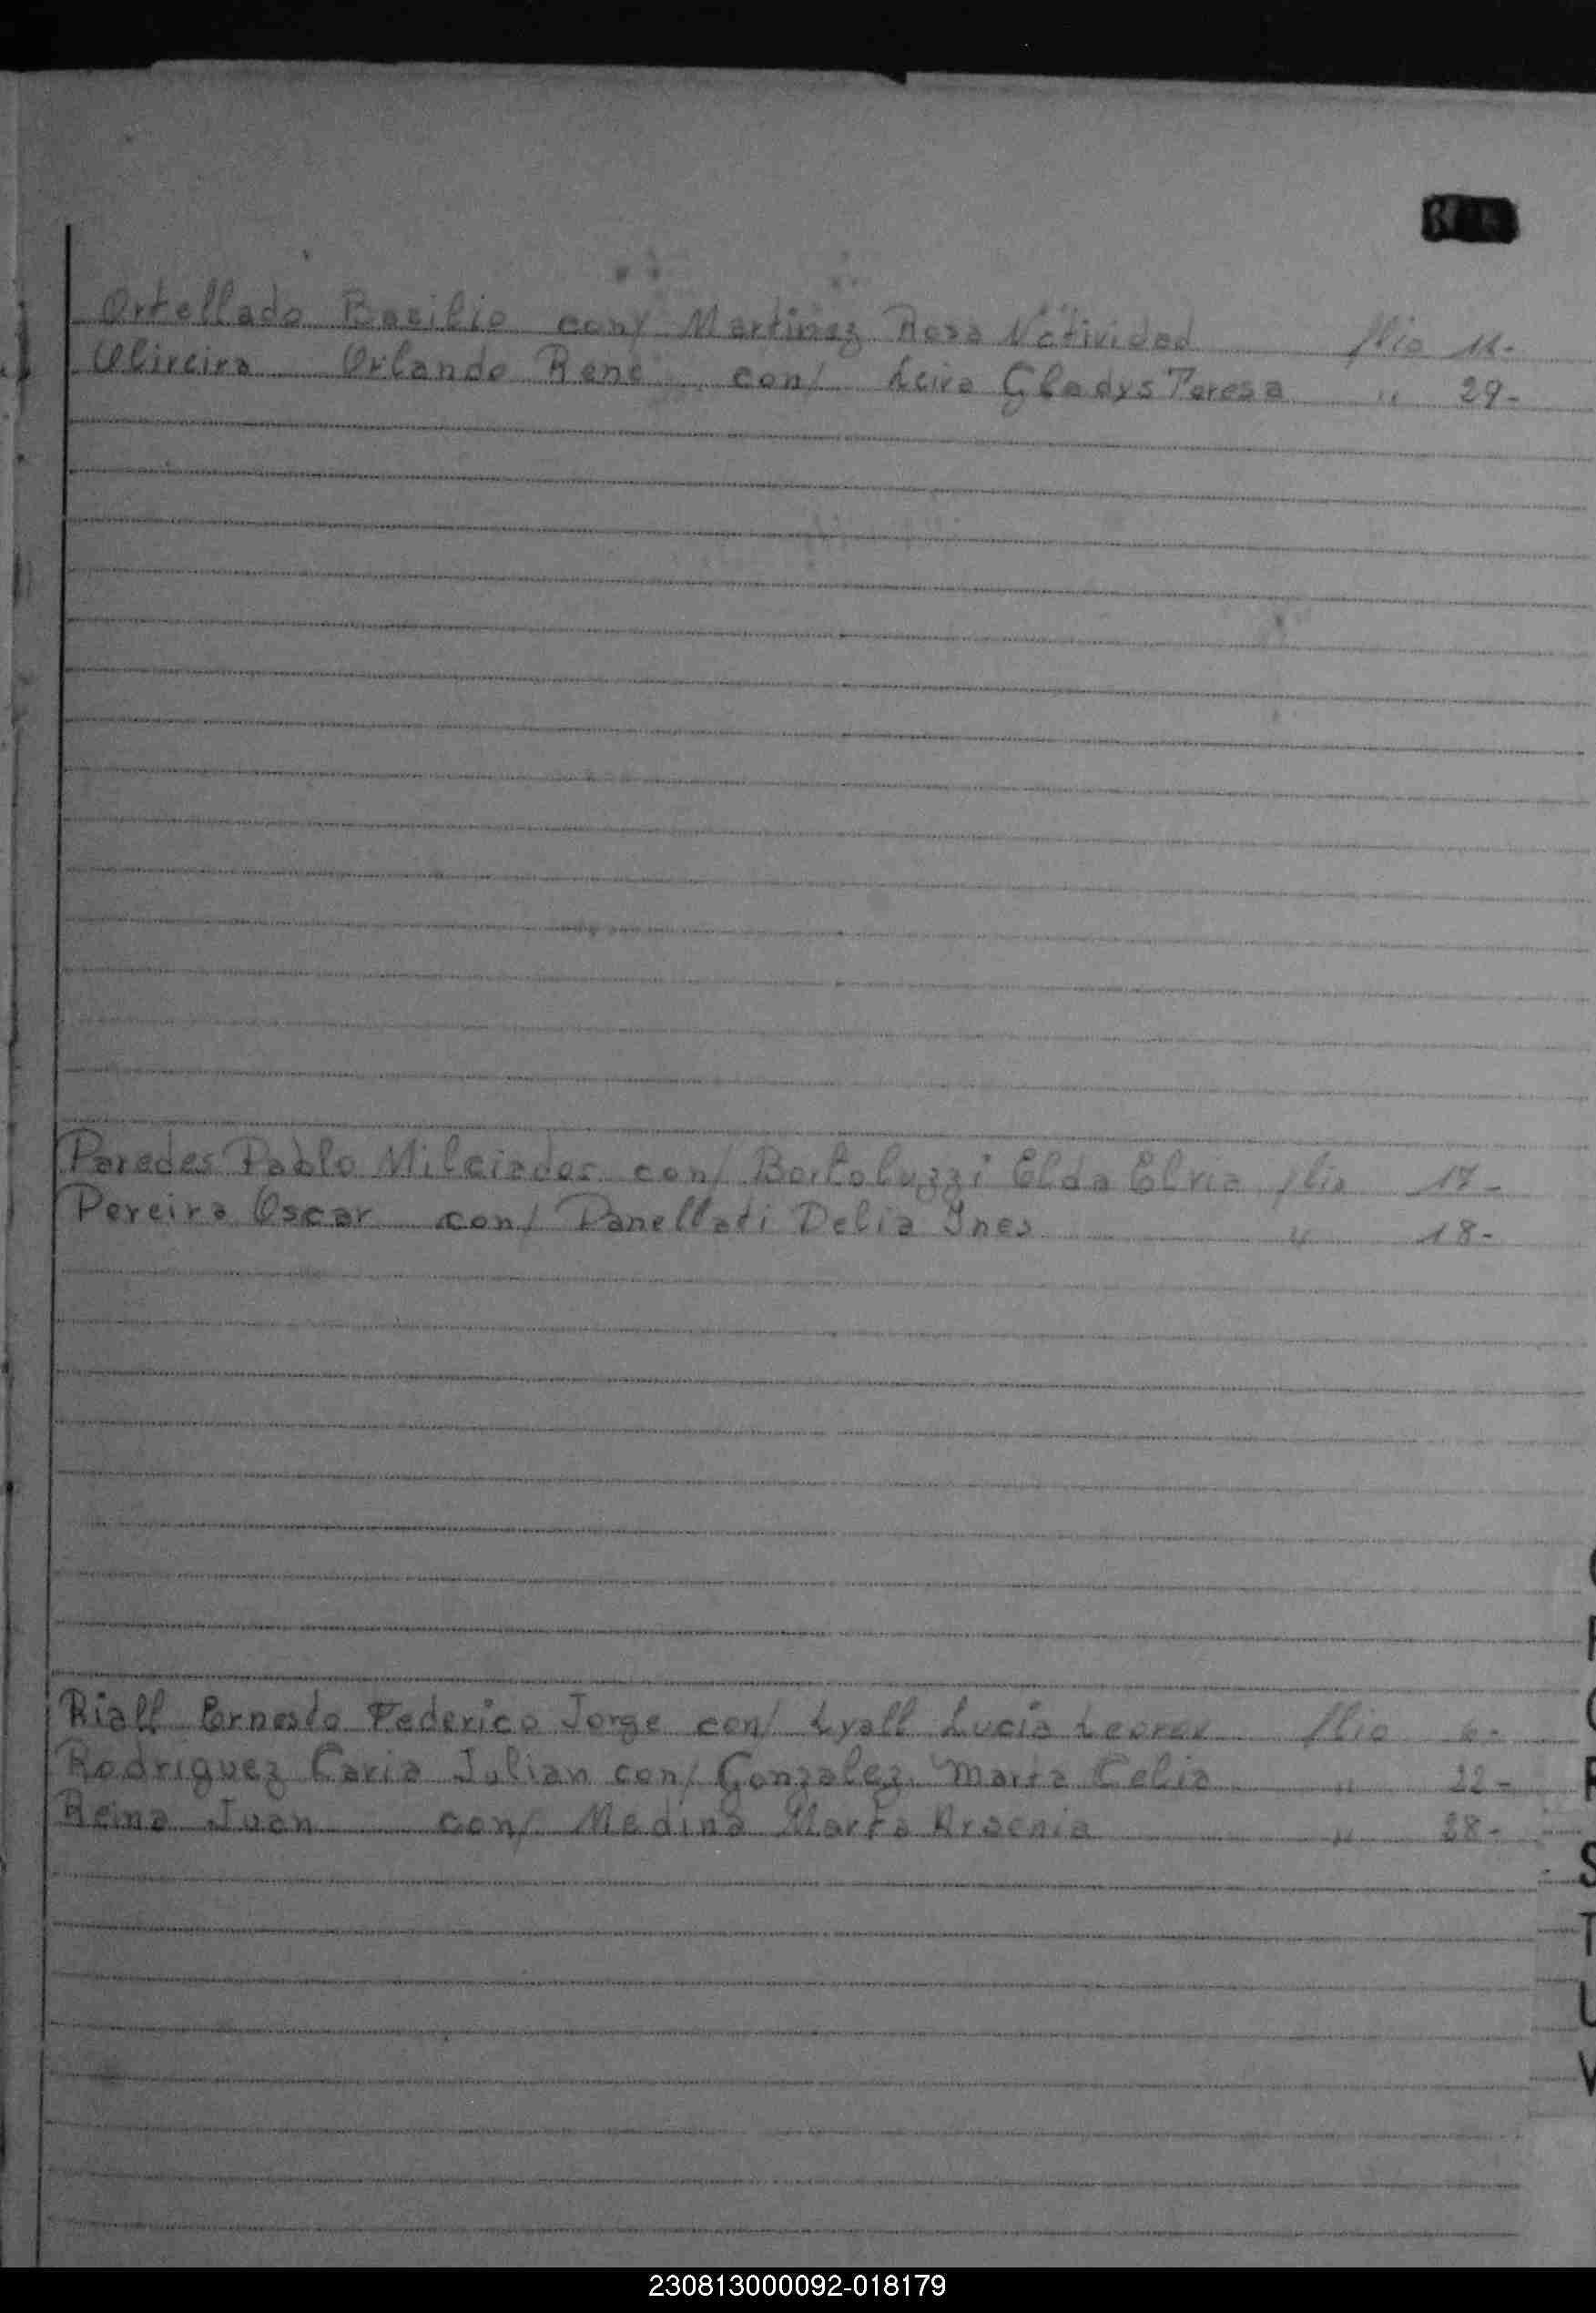 Ortellado Basilio con/ Martinez Rosa Natividad flio 11.-
Oliveira Orlando Rene con/ Leiva Gladys Teresa " 29-
Paredes Pablo Milciades con/ Bortoluzzi Elda Elvia flio 17-
Pereira Oscar con/ Panellati Delia Ines " 18-
Riall Ernesto Federico Jorge con/ Lyall Lucia Leonor flio 6-
Rodriguez Caria Julian con/ Gonzalez Marta Celia " 22-
Reina Juan con/ Medina Marta Arsenia " 28-
S
T
U
V
230813000092-018179